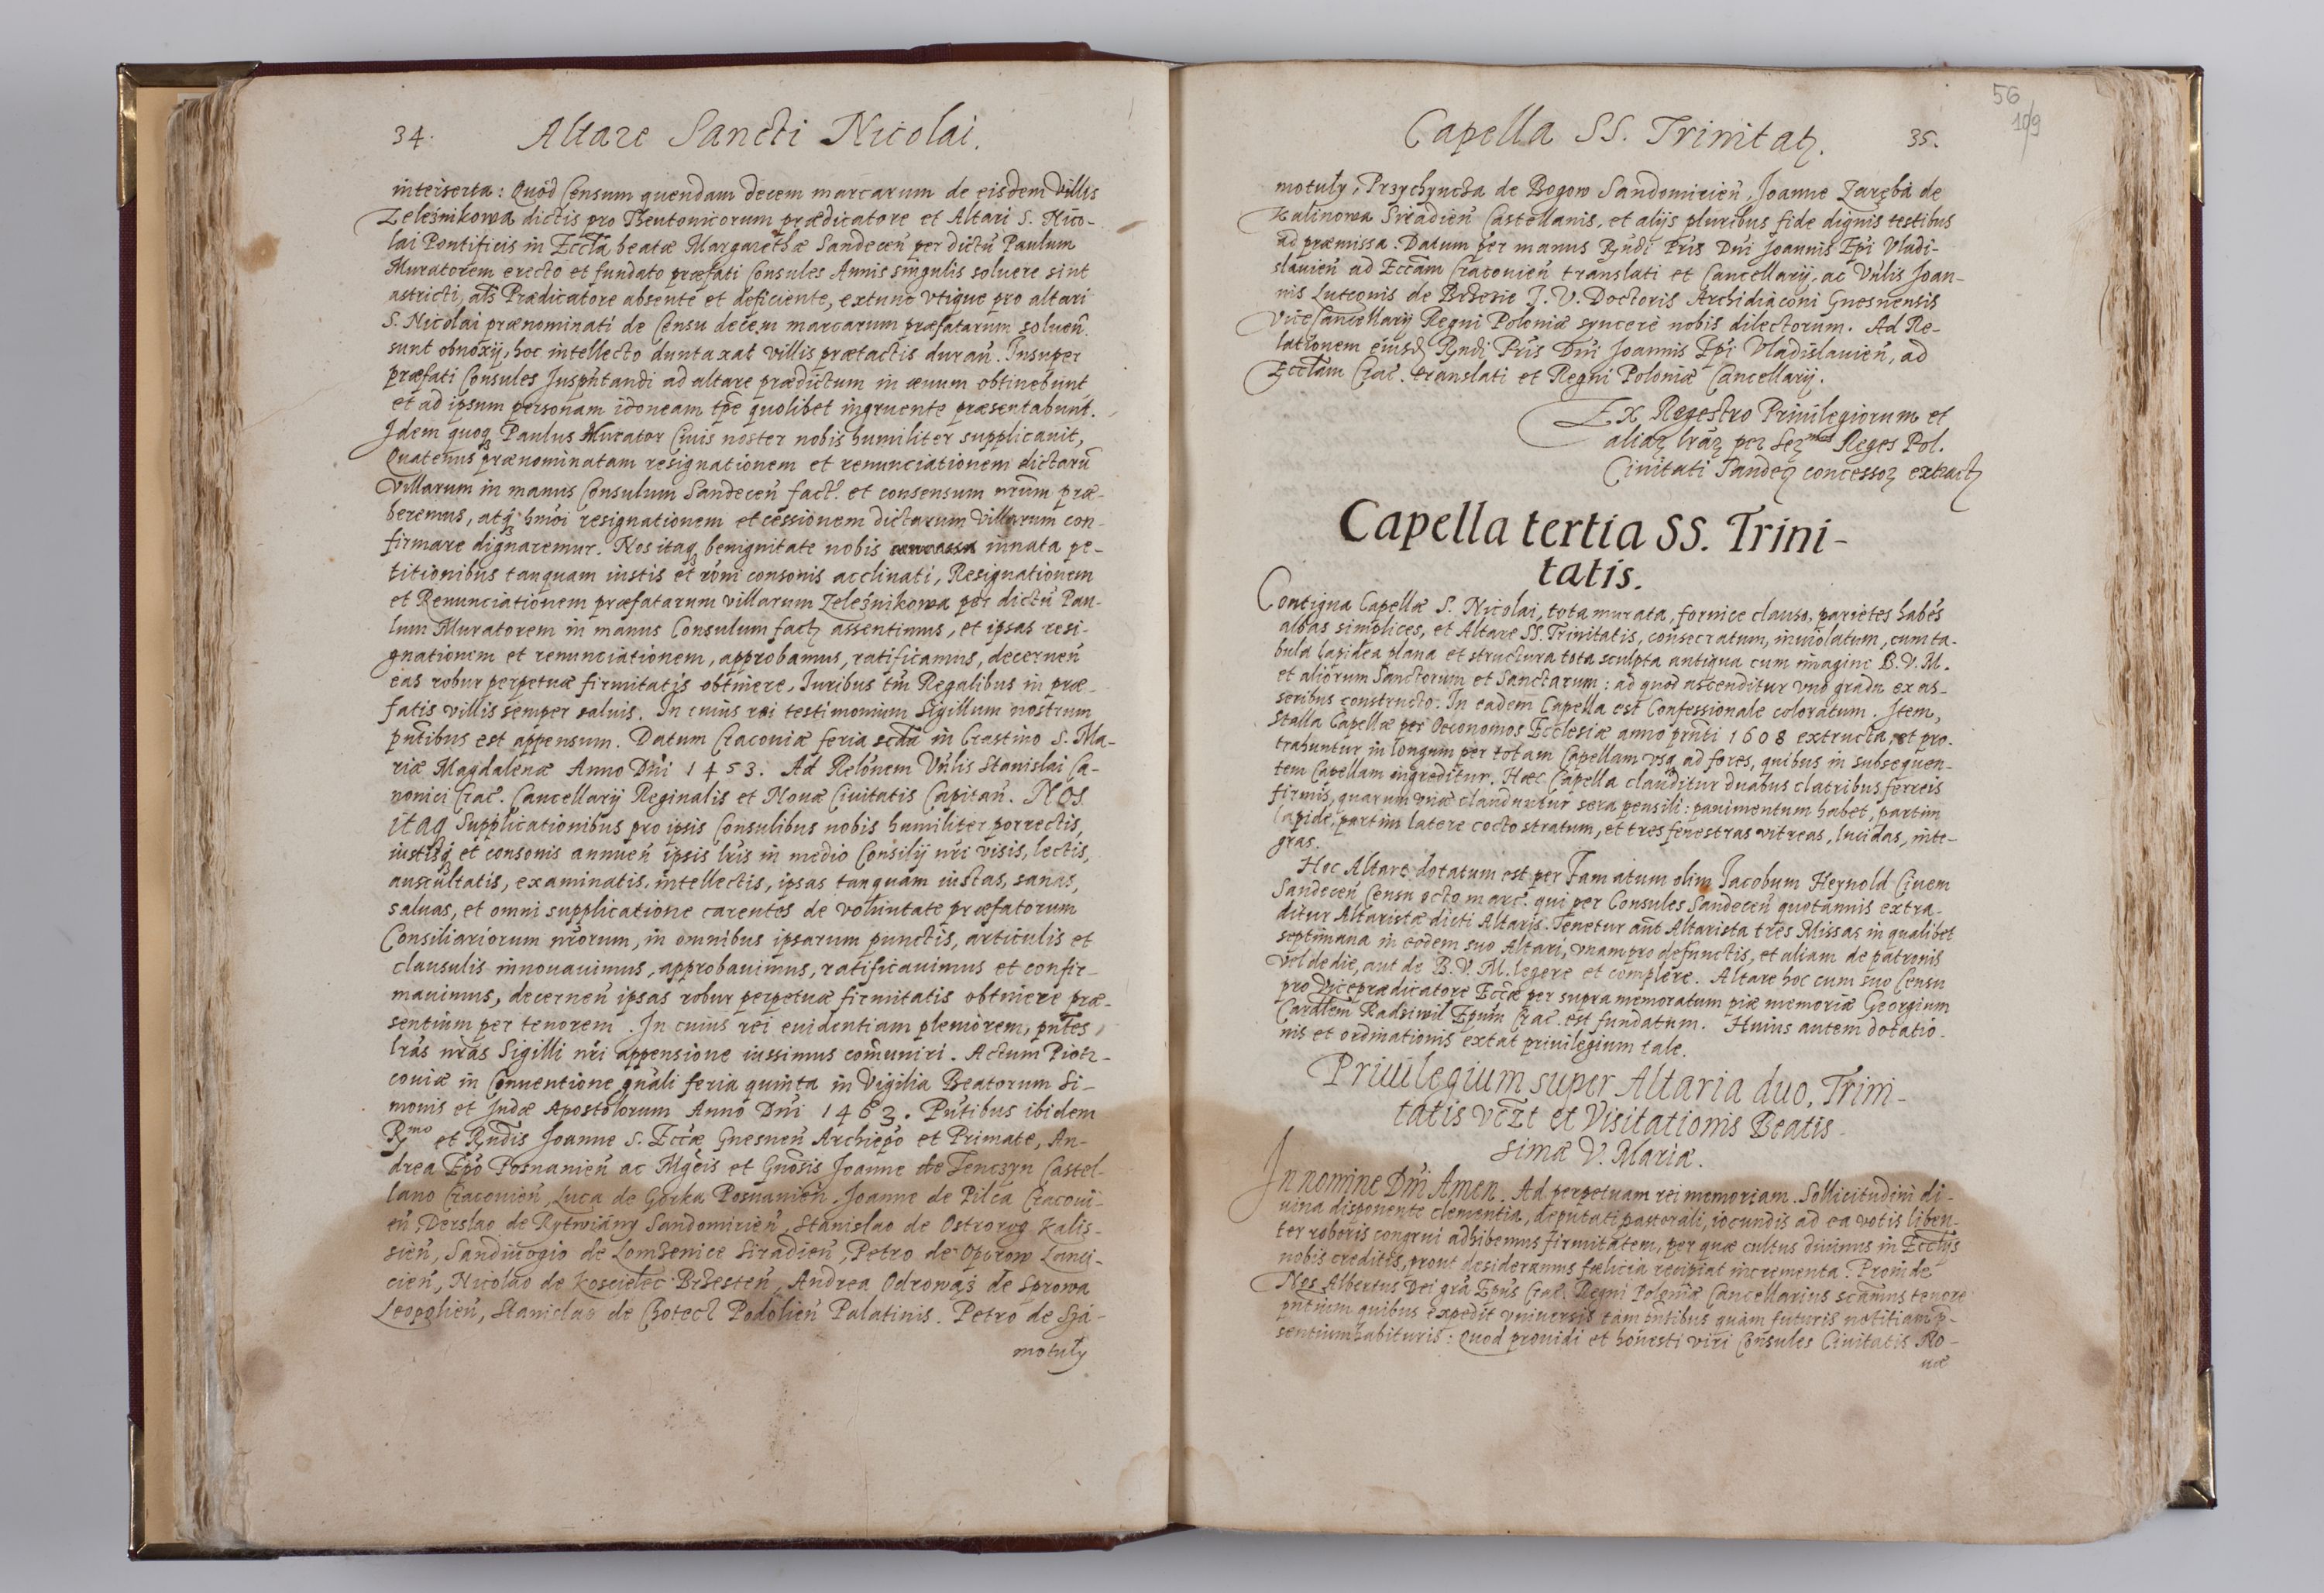 34.
Altare Sancti Nicolai.
interserta: Quòd Censum quendam decem marcarum de eisdem Villis
Zeleśnikowa dictis pro Theutonicorum prædicatore et Altari S. Nico-
lai Pontificis in Eccłã beatæ Margarethæ Sandeceñ per dictũ Paulum
Muratorem erecto et fundato præfati Consules Annis singulis soluere sint
astricti, als Prædicatore absente et deficiente, extunc vtique pro altari
S. Nicolai prænominati de Censu decem marcarum præfatarum soluen̄
sunt obnoxij, hoc intellecto duntaxat villis prætactis durañ. Insuper
præfati Consules Iuspñtandi ad altare prædictum in æuum obtinebunt
et ad ipsum personam idoneam tp̃e quolibet ingruente præsentabunt.
Idem quoq Paulus Murator Ciuis noster nobis humiliter supplicauit,
Quatenus prænominatam resignationem et renunciationem dictarũ
Villarum in manus Consulum Sandeceñ fact. et consensum nrũm præ-
beremus, atq hm̃oi resignationem et cessionem dictarum Villarum con-
firmare dignaremur. Nos itaq benignitate nobis innata pe-
titionibus tanquam iustis et rõni consonis acclinati, Resignationem
et Renunciationem præfatarum villarum Zeleśnikowa per dictũ Pau-
lum Muratorem in manus Consulum fact assentimus, et ipsas resi-
gnationem et renunciationem, approbamus, ratificamus, decerneñ
eas robur perpetuæ firmitatis obtinere, Iuribus tm̃ Regalibus in præ-
fatis villis semper saluis. In cuius rei testimonium Sigillum nostrum
pñtibus est appensum. Datum Cracouiæ feria scdã in Crastino S. Ma-
riæ Magdalenæ Anno Dñi 1453. Ad Relõnem Vñlis Stanislai Ca-
nonici Crac. Cancellarij Reginalis et Nouæ Ciuitatis Capitañ. NOS
itaq Supplicationibus pro ipsis Consulibus nobis humiliter porrectis,
iustisq et consonis annueñ ipsis lris in medio Consilij nri visis, lectis,
auscultatis, examinatis, intellectis, ipsas tanquam iustas, sanas,
saluas, et omni supplicatione carentes de voluntate præfatorum
Consiliariorum nrõrum, in omnibus ipsarum punctis, articulis et
clausulis innouauimus, approbauimus, ratificauimus et confir-
mauimus, decerneñ ipsas robur perpetuæ firmitatis obtinere præ-
sentium per tenorem. In cuius rei euidentiam pleniorem, pñtes
lrãs nrãs Sigilli nri appensione iussimus com̃uniri. Actum Piotr-
couiæ in Conuentione gnãli feria quinta in Vigilia Beatorum Si-
monis et Judæ Apostolorum Anno Dñi 1463. Pñtibus ibidem
Rmo et Rñdis Joanne S. Eccæ Gnesneñ Archiepõ et Primate, An-
drea Epõ Posnanieñ ac Mgcis et Gnõsis Joanne de Tenczyn Castel-
lano Cracouieñ, Luca de Gorka Posnanieñ, Joanne de Pilca Cracoui-
eñ, Derslao de Rytwiány Sandomirieñ, Stanislao de Ostrorog Kalis-
sieñ, Sandiuogio de Lombenice Siradieñ, Petro de Oporow Lanci-
cieñ, Nicolao de Koscielec Brzesteñ, Andrea Odrowąż de Sprowa
Leopolieñ, Stanislao de Chotecz Podolieñ Palatinis. Petro de Sza-
motuły
56
109
Capella SS. Trinitat.
35.
motuły, Przychyncta de Bogow Sandomirieñ, Joanne Zarębà de
Kalinowa Siradieñ Castellanis, et alijs pluribus fide dignis testibus
ad præmissa. Datum per manus Rñdi Pris Dñi Joannis Epi Vladi-
slauieñ ad Eccãm Cracouieñ translati et Cancellarij, ac Vñlis Joan-
nis Luteonis de Brzezie J. V. Doctoris Archidiaconi Gnesnensis
Vice Cancellarij Regni Poloniæ syncerè nobis dilectorum. Ad Re-
lationem eiusd Rñdi Pris Dñi Joannis Epi Vladislauieñ, ad
Eccłam Crac. translati et Regni Poloniæ Cancellarij.
Ex Regestro Priuilegiorum et
aliar lrar per Sermos Reges Pol.
Ciuitati Sandec concessor extract
Capella tertia SS. Trini-
tatis.
Contigua Capellæ S. Nicolai, tota murata, fornice clauso, parietes habẽs
albas simplices, et Altare SS. Trinitatis, consecratum, inuiolatum, cum ta-
bula lapidea plana et structura tota sculpta antiqua cum imagine B. V. M.
et aliorum Sanctorum et Sanctarum: ad quod ascenditur vno gradu ex as-
seribus constructo. In eadem Capella est Confessionale coloratum. Item,
Stalla Capellæ per Oeconomos Ecclesiæ anno prñti 1608 extructa, et pro-
trahuntur in longum per totam Capellam vsq ad fores, quibus in subsequen-
tem Capellam ingreditur. Hæc Capella clauditur duabus clatribus ferreis
firmis, quarum vnæ clauduntur sera pensili: pauimentum habet, partim
lapide, partim latere cocto stratum, et tres fenestras vitreas, lucidas, inte-
gras.
Hoc Altare dotatum est per Famatum olim Jacobum Heynold Ciuem
Sandeceñ Censu octo marc. qui per Consules Sandeceñ quotannis extra-
ditur Altaristæ dicti Altaris. Tenetur aut̃ Altarista tres Missas in qualibet
septimana in eodem suo Altari, vnam pro defunctis, et aliam de patronis
vel de die, aut de B. V. M. legere et complere. Altare hoc cum suo Censu
pro Viceprædicatore Eccæ per supra memoratum piæ memoriæ Georgium
Cardlem Radziwil Epum Crac. est fundatum. Huius autem dotatio-
nis et ordinationis extat priuilegium tale.
Priuilegium super Altaria duo, Trini-
tatis vczt et Visitationis Beatis-
simæ V. Mariæ.
In nomine Dñi Amen. Ad perpetuam rei memoriam. Sollicitudini di-
uina disponente clementia, deputati pastorali, iocundis ad ea votis liben-
ter roboris congrui adhibemus firmitatem, per quæ cultus diuinus in Eccłijs
nobis creditis, prout desideramus fœlicia recipiat incrementa. Proinde
Nos Albertus Dei grã Epus Crac. Regni Poloniæ Cancellarius Scamus tenore
pñtium quibus expedit vniuersis tam pñtibus quàm futuris notitiam p-
sentium habituris: Quod prouidi et honesti viri Consules Ciuitatis No-
uæ